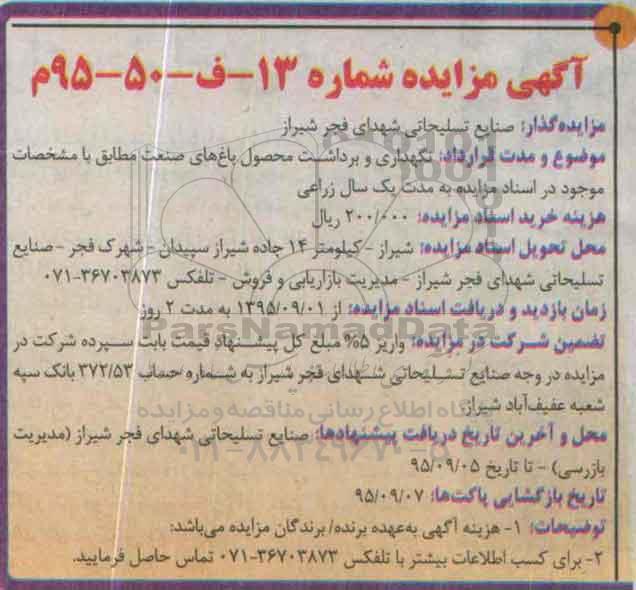 آگهی مزایده شماره ۱۳-ف-۵۰-۹۵م
مزایده‌گذار: صنایع تسلیحاتی شهدای فجر شیراز
موضوع و مدت قرارداد: نگهداری و برداشت محصول باغ‌های صنعت مطابق با مشخصات
موجود در اسناد مزایده به مدت یک سال زراعی
هزینه خرید اسناد مزایده: ۲۰۰/۰۰۰ ریال
محل تحویل اسناد مزایده: شیراز - کیلومتر ۱۴ جاده شیراز سپیدان - شهرک فجر - صنایع
تسلیحاتی شهدای فجر شیراز - مدیریت بازاریابی و فروش - تلفکس ۳۶۷۰۳۸۷۳-۰۷۱
زمان بازدید و دریافت اسناد مزایده: از ۱۳۹۵/۰۹/۰۱ به مدت ۲ روز
ParsNamadData
تضمین شرکت در مزایده: واریز ۵% مبلغ کل پیشنهاد قیمت بابت سپرده شرکت در
مزایده در وجه صنایع تسلیحاتی شهدای فجر شیراز به شماره حساب ۳۷۲/۵۳ بانک سپه
شعبه عفیف‌آباد شیراز.
پایگاه اطلاع رسانی مناقصه و مزایده
محل و آخرین تاریخ دریافت پیشنهادها: صنایع تسلیحاتی شهدای فجر شیراز (مدیریت
بازرسی) - تا تاریخ ۹۵/۰۹/۰۵
۰۲۱-۸۸۳۴۹۶۷۰-۵
تاریخ بازگشایی پاکت‌ها: ۹۵/۰۹/۰۷
توضیحات: ۱- هزینه آگهی به‌عهده برنده/ برندگان مزایده می‌باشد:
۲- برای کسب اطلاعات بیشتر با تلفکس ۳۶۷۰۳۸۷۳-۰۷۱ تماس حاصل فرمایید.